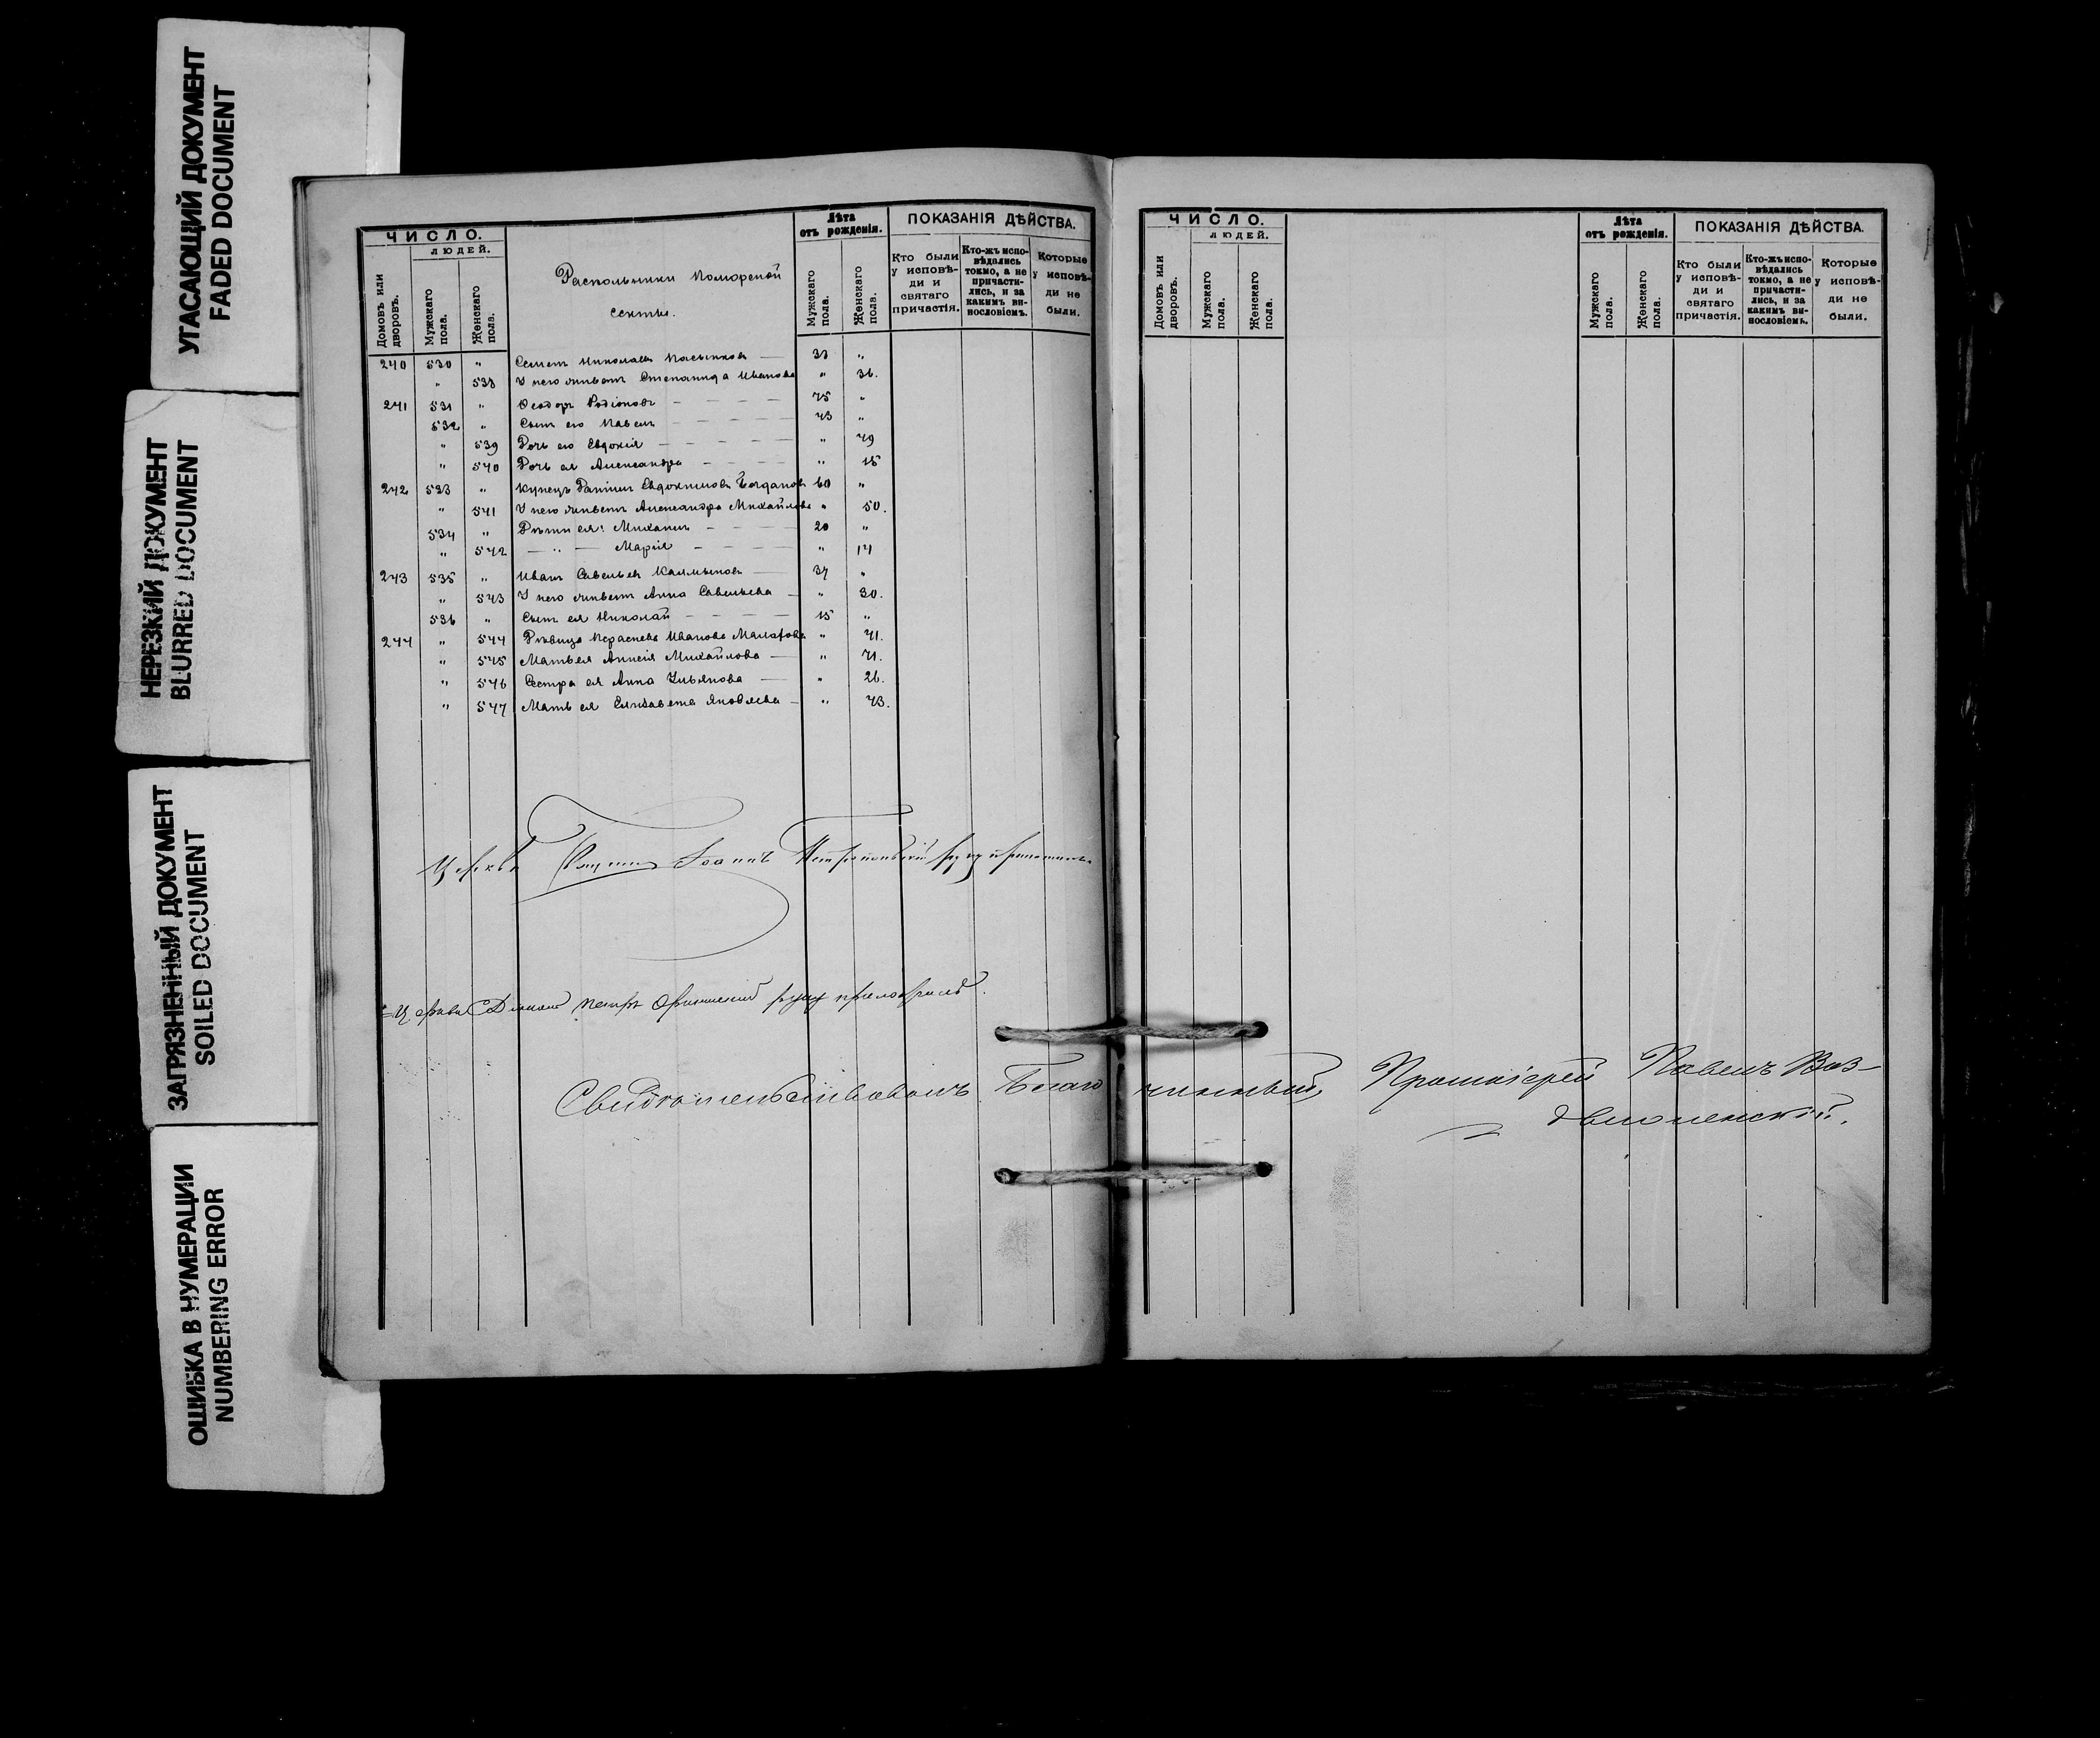 УГАСАЮЩИЙ ДОКУМЕНТ
FADED DOCUMENT
НЕРЕЗКИЙ ДОКУМЕНТ
BLURRED DOCUMENT
ЗАГРЯЗНЕННЫЙ ДОКУМЕНТ
SOILED DOCUMENT
ОШИБКА В НУМЕРАЦИИ
NUMBERING ERROR
ЧИСЛО.
ЛЮДЕЙ.
Домовъ или дворовъ.
Мужскаго пола.
Женскаго пола.
Раскольники Поморской
секты.
Лѣта
отъ рожденія.
Мужскаго пола.
Женскаго пола.
ПОКАЗАНІЯ ДѢЙСТВА.
Кто были у исповѣ-ди и святаго причастія.
Кто-жъ испо-вѣдались токмо, а не причасти-лись, и за какимъ ви-нословіемъ.
Которые у исповѣ-ди не были.
240 530 " Николаевъ — "
" 538 У него живетъ Степанида Иванова " 36.
241 531 " Ѳеодоръ Родіоновъ — 75 "
532 " Сынъ его Павелъ — 43 "
" 539 Дочь его Евдокія — " 49
" 540 Дочь ея Александра — " 15
242 533 " Купецъ Даніилъ Евдокимовъ Богдановъ 60 "
" 541 У него живетъ Александра Михайлова " 50.
534 " Дѣти ея: Михаилъ — 20 "
" 542 — " — Марія — " 14
243 535 " Иванъ Савельевъ Калмыковъ — 37 "
" 543 У него живетъ Анна Савельева — " 30.
536 " Сынъ ея Николай — 15 "
244 " 544 Дѣвица Параскева Иванова " 41.
" 545 Мать ея Михайлова — " 71.
" 546 Сестра ея Анна — " 26.
" 547 Мать ея Елизавета Яковлева — " 43.
Церкви Іоаннъ
Церкви Діаконъ Петръ руку приложилъ.
Свидѣтельствовалъ Благочинный, Протоіерей Павелъ Воз-
движенскій.
ЧИСЛО.
ЛЮДЕЙ.
Домовъ или дворовъ.
Мужскаго пола.
Женскаго пола.
Лѣта
отъ рожденія.
Мужскаго пола.
Женскаго пола.
ПОКАЗАНІЯ ДѢЙСТВА.
Кто были у исповѣ-ди и святаго причастія.
Кто-жъ испо-вѣдались токмо, а не причасти-лись, и за какимъ ви-нословіемъ.
Которые у исповѣ-ди не были.